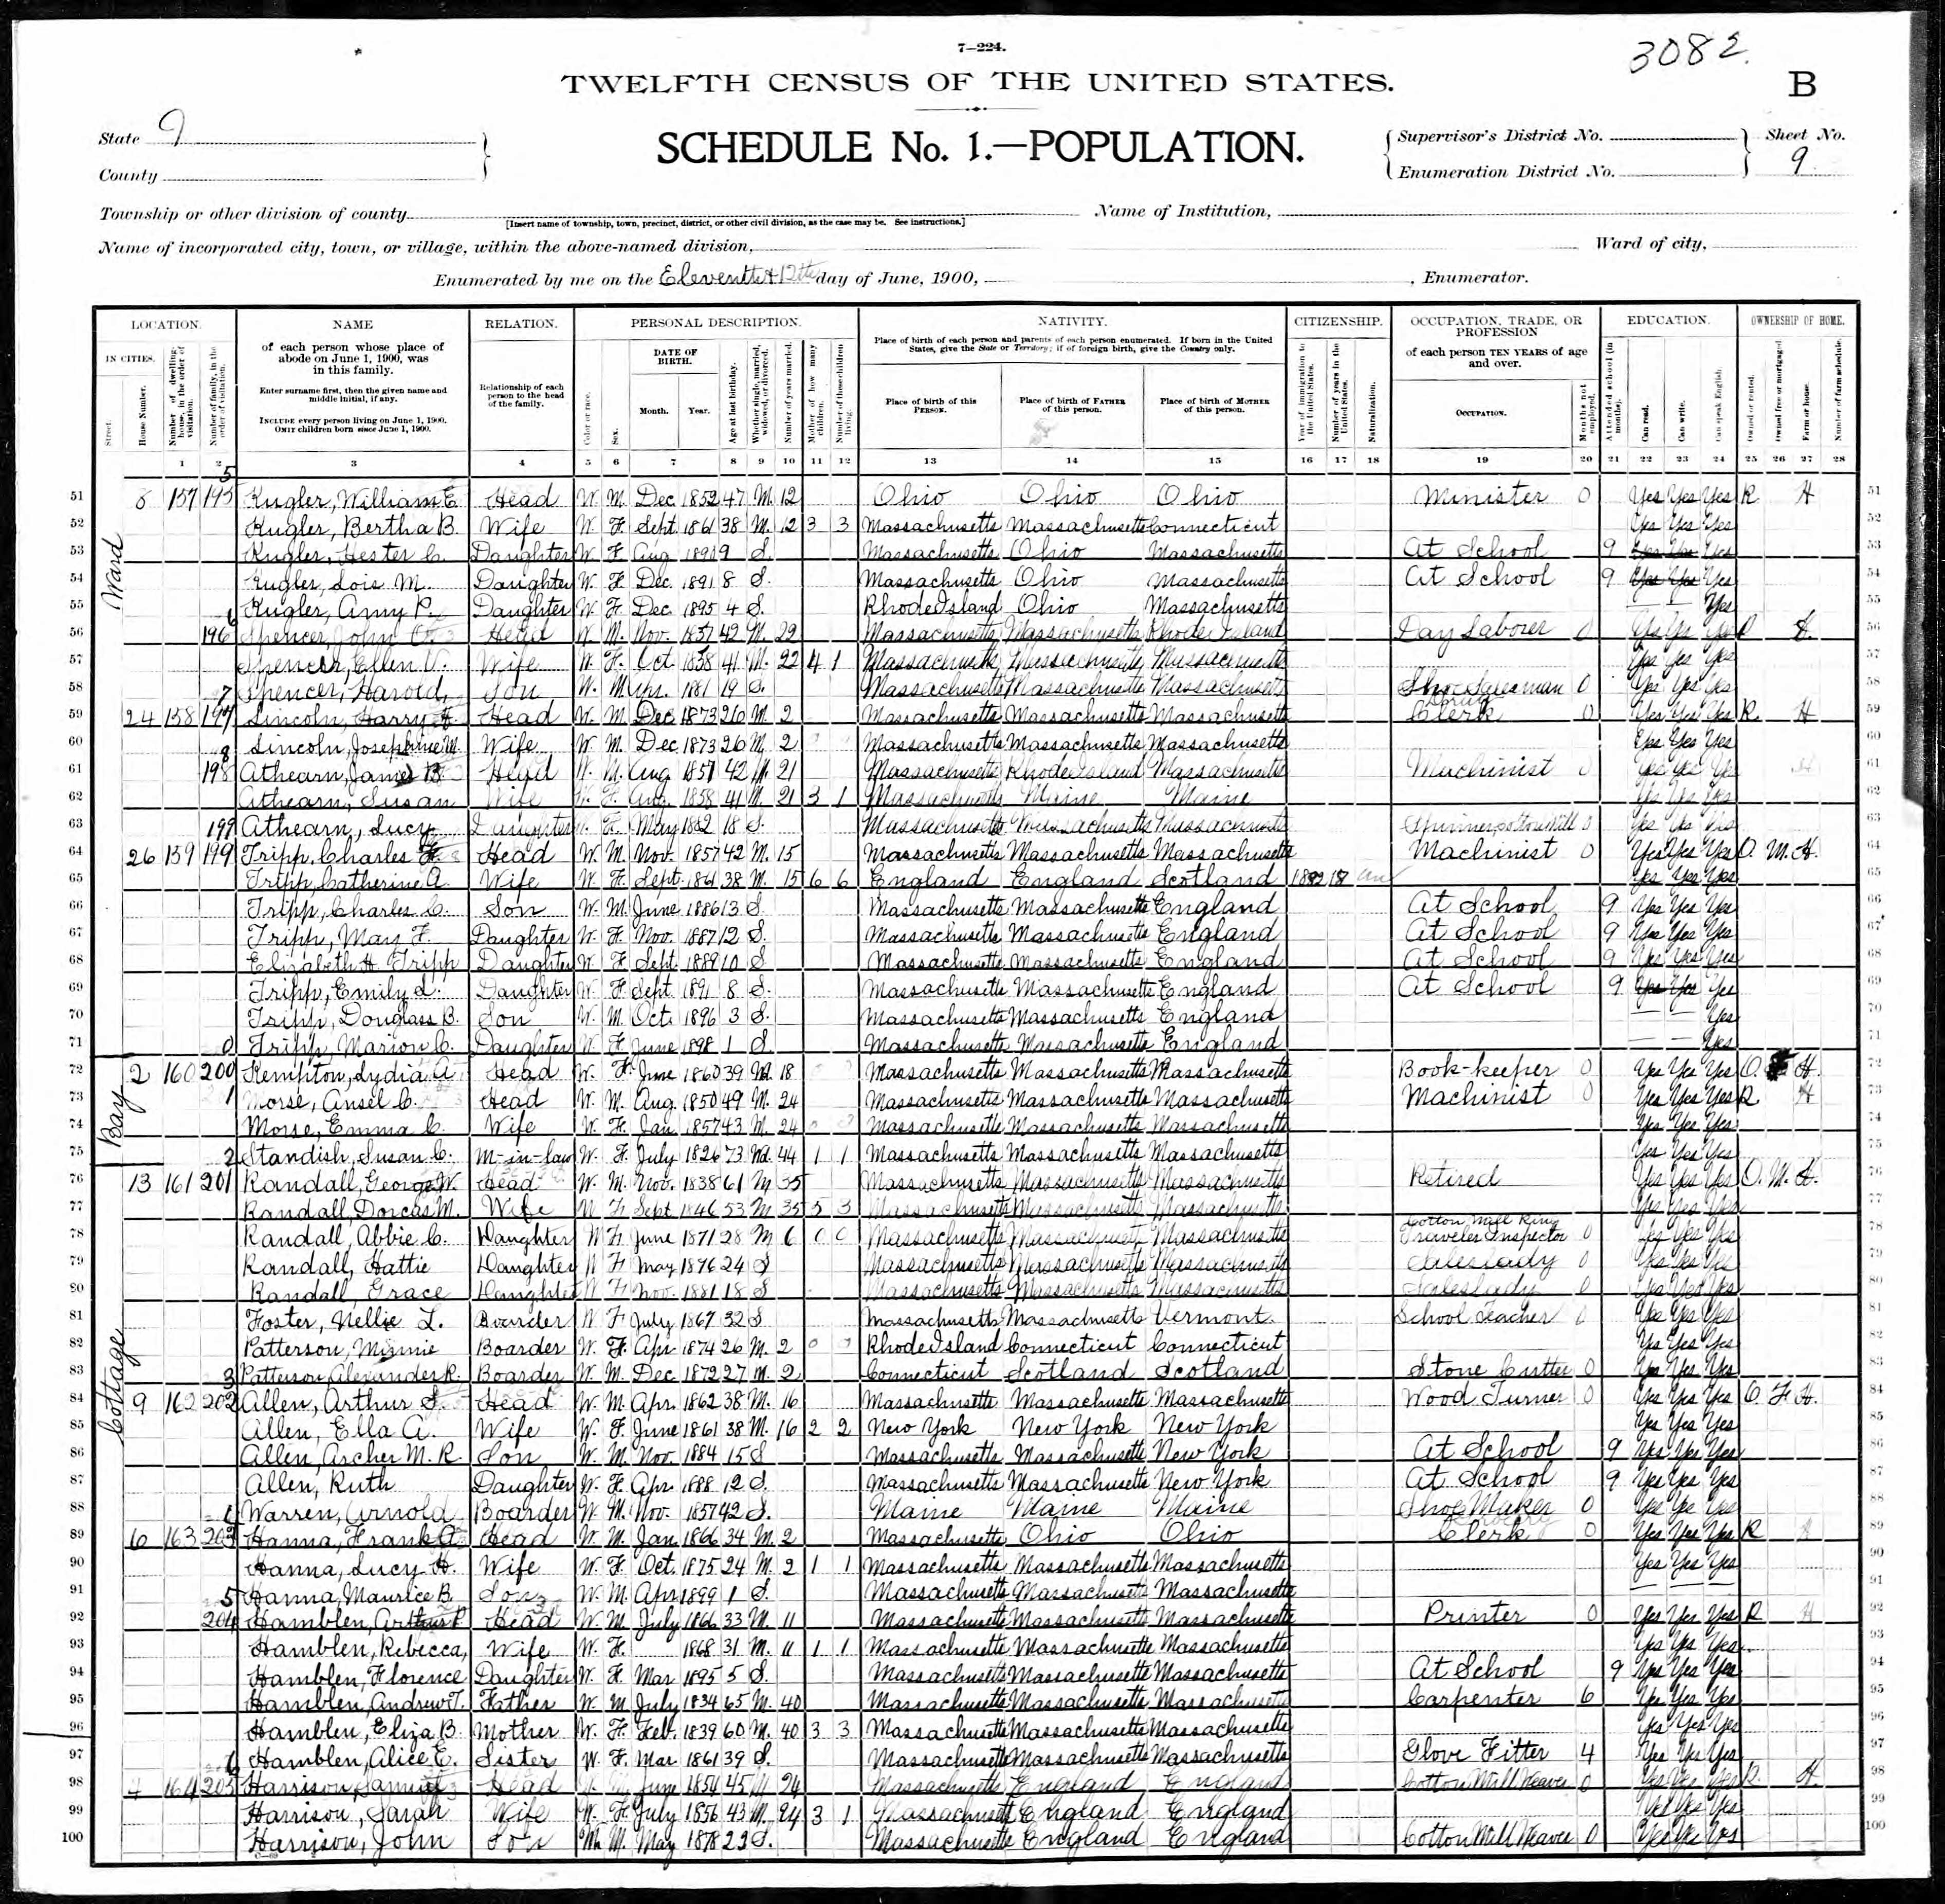 7—224.
3082.
TWELFTH CENSUS OF THE UNITED STATES.
B
State 9
SCHEDULE No. 1.—POPULATION.
Supervisor's District No.
Sheet No.
County
Enumeration District No.
9
Township or other division of county
[Insert name of township, town, precinct, district, or other civil division, as the case may be. See instructions.]
Name of Institution,
Name of incorporated city, town, or village, within the above-named division,
Ward of city,
Enumerated by me on the Eleventh & 12th day of June, 1900, , Enumerator.
LOCATION. NAME RELATION. PERSONAL DESCRIPTION. NATIVITY. CITIZENSHIP. OCCUPATION, TRADE, OR PROFESSION EDUCATION. OWNERSHIP OF HOME.
IN CITIES.
Street.
House Number.
Number of dwelling-house, in the order of visitation.
Number of family, in the order of visitation.
of each person whose place of abode on June 1, 1900, was in this family.
Enter surname first, then the given name and middle initial, if any.
INCLUDE every person living on June 1, 1900.
OMIT children born since June 1, 1900.
Relationship of each person to the head of the family.
Color or race.
Sex.
DATE OF BIRTH.
Month. Year.
Age at last birthday.
Whether single, married, widowed, or divorced.
Number of years married.
Mother of how many children.
Number of these children living.
Place of birth of each person and parents of each person enumerated. If born in the United States, give the State or Territory; if of foreign birth, give the Country only.
Place of birth of this PERSON.
Place of birth of FATHER of this person.
Place of birth of MOTHER of this person.
Year of immigration to the United States.
Number of years in the United States.
Naturalization.
of each person TEN YEARS of age and over.
OCCUPATION.
Months not employed.
Attended school (in months).
Can read.
Can write.
Can speak English.
Owned or rented.
Owned free or mortgaged.
Farm or house.
Number of farm schedule.
1 2 3 4 5 6 7 8 9 10 11 12 13 14 15 16 17 18 19 20 21 22 23 24 25 26 27 28
Ward
51 8 157 195 Kugler, William E. Head W. M. Dec 1852 47 M. 12 Ohio Ohio Ohio Minister 0 Yes Yes Yes R H 51
52 Kugler, Bertha B. Wife W. F. Sept. 1861 38 M. 12 3 3 Massachusetts Massachusetts Connecticut Yes Yes Yes 52
53 Kugler, Hester C. Daughter W. F. Aug 1891 9 S. Massachusetts Ohio Massachusetts At School 9 Yes Yes Yes 53
54 Kugler, Lois M. Daughter W. F. Dec. 1891 8 S. Massachusetts Ohio Massachusetts At School 9 Yes Yes Yes 54
55 Kugler, Amy R. Daughter W. F. Dec 1895 4 S. Rhode Island Ohio Massachusetts Yes 55
56 196 Spencer, John Head W. M. Nov. 1857 42 M. 22 Massachusetts Massachusetts Rhode Island Day Laborer 0 Yes Yes Yes R H. 56
57 Spencer, Ellen V. Wife W. F. Oct. 1858 41 M. 22 4 1 Massachusetts Massachusetts Massachusetts Yes Yes Yes 57
58 Spencer, Harold, Son W. M. Apr. 1881 19 S. Massachusetts Massachusetts Massachusetts Shoe Salesman 0 Yes Yes Yes 58
59 24 158 197 Lincoln, Harry H. Head W. M. Dec 1873 26 M. 2 Massachusetts Massachusetts Massachusetts Drug Clerk 0 Yes Yes Yes R. H 59
60 Lincoln, Josephine M. Wife W. M. Dec 1873 26 M. 2 Massachusetts Massachusetts Massachusetts Yes Yes Yes 60
61 198 Athearn, James B Head W. M. Aug 1857 42 M. 21 Massachusetts Rhode Island Massachusetts Machinist 0 Yes Yes Yes H 61
62 Athearn, Susan Wife W. F. Aug 1858 41 M. 21 3 1 Massachusetts Maine Maine Yes Yes Yes 62
63 Athearn, Lucy Daughter W. F. May 1882 18 S. Massachusetts Massachusetts Massachusetts Spinner, Cotton Mill 0 Yes Yes Yes 63
64 26 159 199 Tripp, Charles F. Head W. M. Nov. 1857 42 M. 15 Massachusetts Massachusetts Massachusetts Machinist 0 Yes Yes Yes O. M. H. 64
65 Tripp, Catherine A. Wife W. F. Sept. 1861 38 M. 15 6 6 England England Scotland Yes Yes Yes 65
66 Tripp, Charles C. Son W. M. June 1886 13 S. Massachusetts Massachusetts England At School 9 Yes Yes Yes 66
67 Tripp, May F. Daughter W. F. Nov. 1887 12 S. Massachusetts Massachusetts England At School 9 Yes Yes Yes 67
68 Elizabeth H Tripp Daughter W. F. Sept. 1889 10 S Massachusetts Massachusetts England At School 9 Yes Yes Yes 68
69 Tripp, Emily L. Daughter W. F. Sept. 1891 8 S. Massachusetts Massachusetts England At School 9 Yes Yes Yes 69
70 Tripp, Douglass B. Son W. M. Oct. 1896 3 S. Massachusetts Massachusetts England Yes 70
71 Tripp, Marion C. Daughter W. F. June 1898 1 S. Massachusetts Massachusetts England Yes 71
Bay
72 2 160 200 Kempton, Lydia A. Head W. F. June 1860 39 Wd. 18 Massachusetts Massachusetts Massachusetts Book-keeper 0 Yes Yes Yes O. H. 72
73 Morse, Ansel C. Head W. M. Aug. 1850 49 M. 24 Massachusetts Massachusetts Massachusetts Machinist 0 Yes Yes Yes R H 73
74 Morse, Emma C. Wife W. F. Jan 1857 43 M. 24 Massachusetts Massachusetts Massachusetts Yes Yes Yes 74
75 Standish, Susan C. M-in-law W. F. July 1826 73 Wd. 44 1 1 Massachusetts Massachusetts Massachusetts Yes Yes Yes 75
Cottage
76 13 161 201 Randall, George W. Head W. M. Nov. 1838 61 M 35 Massachusetts Massachusetts Massachusetts Retired Yes Yes Yes O. M. H. 76
77 Randall, Dorcas M. Wife W F. Sept 1846 53 M 35 5 3 Massachusetts Massachusetts Massachusetts Yes Yes Yes 77
78 Randall, Abbie C. Daughter W F. June 1871 28 M 6 0 0 Massachusetts Massachusetts Massachusetts Cotton Mill Ring Traveler Inspector 0 Yes Yes Yes 78
79 Randall, Hattie Daughter W F May 1876 24 S Massachusetts Massachusetts Massachusetts Saleslady 0 Yes Yes Yes 79
80 Randall, Grace Daughter W F Nov. 1881 18 S Massachusetts Massachusetts Massachusetts Saleslady 0 Yes Yes Yes 80
81 Foster, Nellie L. Boarder W F July 1867 32 S Massachusetts Massachusetts Vermont. School Teacher 0 Yes Yes Yes 81
82 Patterson, Minnie Boarder W. F. Apr 1874 26 M. 2 0 Rhode Island Connecticut Connecticut Yes Yes Yes 82
83 Patterson, Alexander R. Boarder W. M. Dec 1872 27 M. 2 Connecticut Scotland Scotland Stone Cutter 0 Yes Yes Yes 83
84 9 162 202 Allen, Arthur S. Head W. M. Apr. 1862 38 M. 16 Massachusetts Massachusetts Massachusetts Wood Turner 0 Yes Yes Yes O. F. H. 84
85 Allen, Ella A. Wife W. F. June 1861 38 M. 16 2 2 New York New York New York Yes Yes Yes 85
86 Allen, Archer M. R. Son W. M. Nov. 1884 15 S Massachusetts Massachusetts New York At School 9 Yes Yes Yes 86
87 Allen, Ruth Daughter W. F. Apr 1888 12 S. Massachusetts Massachusetts New York At School 9 Yes Yes Yes 87
88 Warren, Arnold Boarder W. M. Nov. 1857 42 S. Maine Maine Maine Shoe Maker 0 Yes Yes Yes 88
89 6 163 203 Hanna, Frank A. Head W. M. Jan 1866 34 M. 2 Massachusetts Ohio Ohio Clerk 0 Yes Yes Yes R 89
90 Hanna, Lucy H. Wife W. F. Oct. 1875 24 M. 2 1 1 Massachusetts Massachusetts Massachusetts Yes Yes Yes 90
91 Hanna, Maurice B. Son W. M. Apr 1899 1 S. Massachusetts Massachusetts Massachusetts 91
92 204 Hamblen, Arthur P Head W. M. July 1866 33 M. 11 Massachusetts Massachusetts Massachusetts Printer 0 Yes Yes Yes R H 92
93 Hamblen, Rebecca, Wife W. F. 1868 31 M. 11 1 1 Massachusetts Massachusetts Massachusetts Yes Yes Yes 93
94 Hamblen, Florence Daughter W. F. Mar 1895 5 S. Massachusetts Massachusetts Massachusetts At School 9 Yes Yes Yes 94
95 Hamblen, Andrew T. Father W. M. July 1834 65 M. 40 Massachusetts Massachusetts Massachusetts Carpenter 6 Yes Yes Yes 95
96 Hamblen, Eliza B. Mother W. F. Feb. 1839 60 M. 40 3 3 Massachusetts Massachusetts Massachusetts Yes Yes Yes 96
97 Hamblen, Alice E. Sister W. F. Mar 1861 39 S. Massachusetts Massachusetts Massachusetts Glove Fitter 4 Yes Yes Yes 97
98 4 164 205 Harrison, Samuel Head W. M. June 1854 45 M 24 Massachusetts England England Cotton Mill Weaver 0 Yes Yes Yes R. H 98
99 Harrison, Sarah Wife W. F. July 1856 43 M. 24 3 1 Massachusetts England England Yes Yes Yes 99
100 Harrison, John Son W. M. May 1878 22 S. Massachusetts England England Cotton Mill Weaver 0 Yes Yes Yes 100